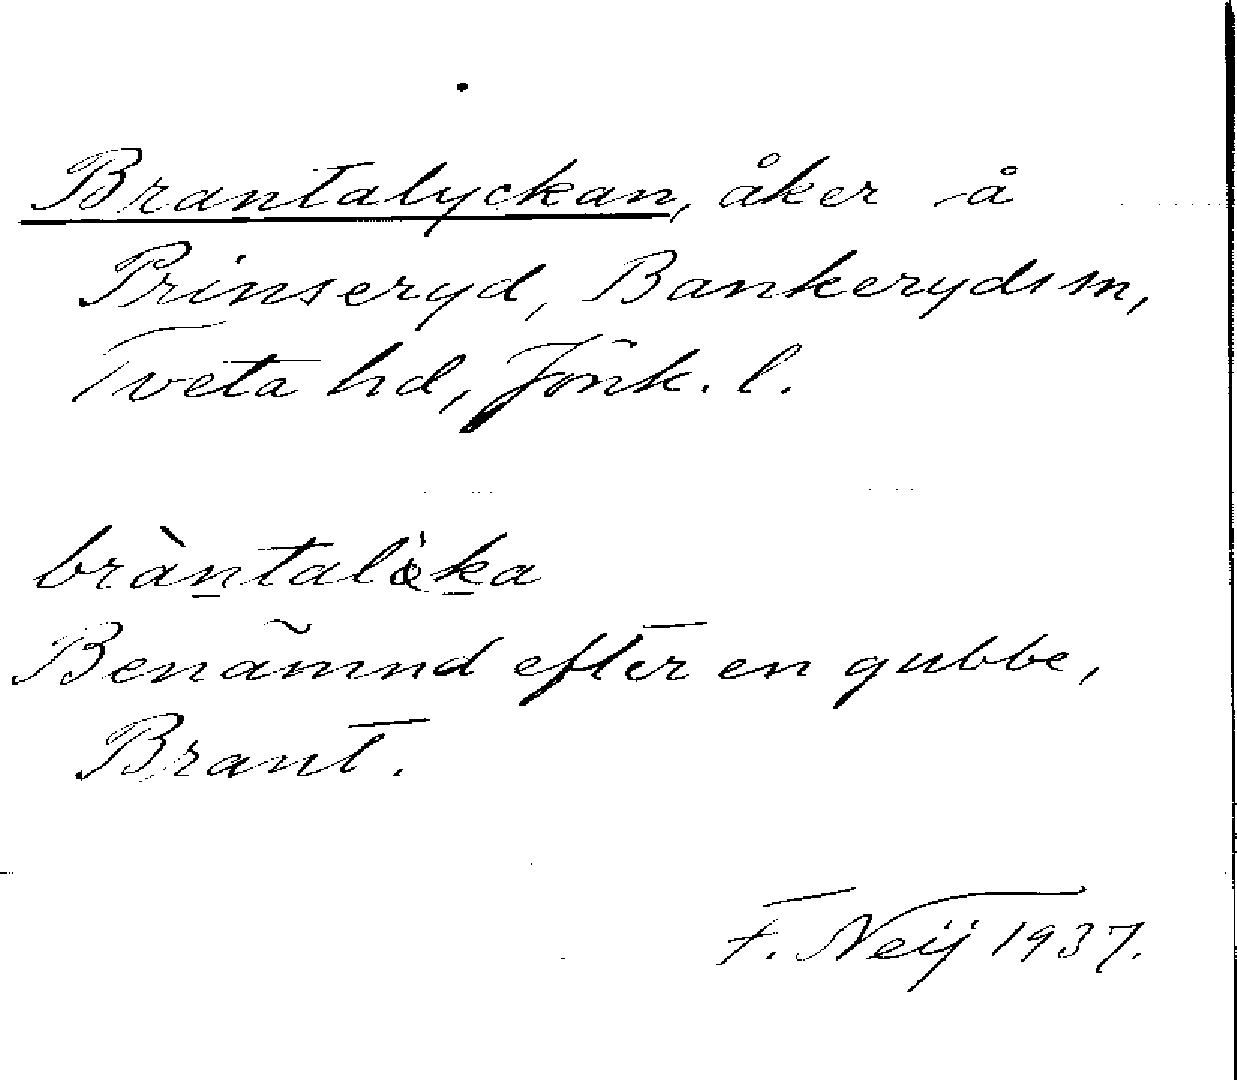 Brantalyckan, åker å
Prinseryd, Bankeryds sn,
Tveta hd, Jönk. l.
Benämnd efter en gubbe,
Brant.
F. Neij 1937.